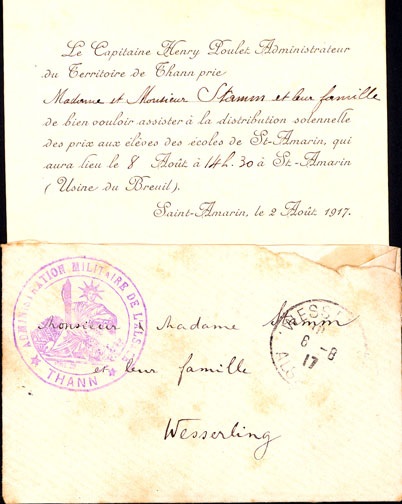 Le Capitaine Henry Poulet Administrateur
du Territoire de Thann prie
Madame et Monsieur Stamm et leur famille
de bien vouloir assister à la distribution solennelle
des prix aux élèves des écoles de St-Amarin, qui
aura lieu le 8 Août à 14h.30 à St-Amarin
(Usine du Breuil).
Saint-Amarin, le 2 Août 1917.
ADMINISTRATION MILITAIRE DE L'ALS
THANN
Monsieur & Madame Stamm
et leur famille
Wesserling
6 -8
17